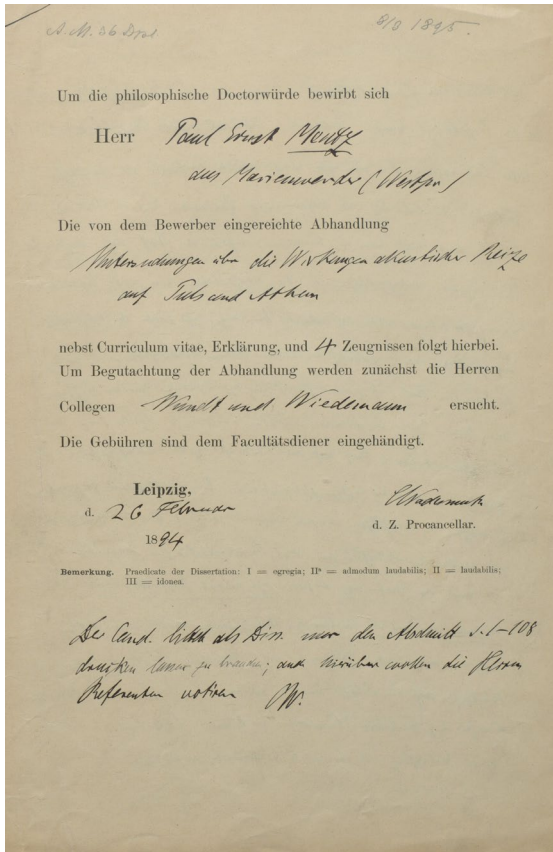 8/0 1895.
Um die philosophische Doctorwürde bewirbt sich
Herr Paul Ernst Mentz
aus Marienwerder (Westpr)
Die von dem Bewerber eingereichte Abhandlung
Untersuchungen über die Wirkungen akustischer Reize
auf Puls und Athem
nebst Curriculum vitae, Erklärung, und 4 Zeugnissen folgt hierbei.
Um Begutachtung der Abhandlung werden zunächst die Herren
Collegen Wundt und Wiedemann ersucht.
Die Gebühren sind dem Facultätsdiener eingehändigt.
Leipzig,
d. 26 Februar
d. Z. Procancellar.
1894
Bemerkung. Praedicate der Dissertation: I = egregia; IIa = admodum laudabilia; II = laudabilia;
III = idonea.
Der Cand. bittet als Diss. nur den Abschnitt S. 1–108
drucken lassen zu brauchen; auch hierüber wollen die Herren
Referenten votiren W.